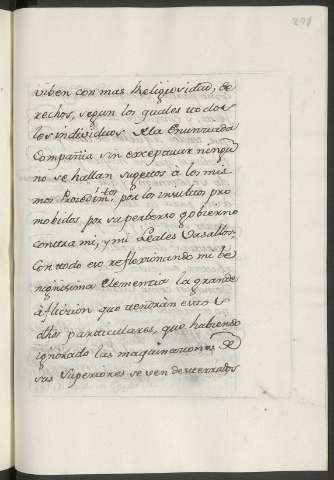 291
viben con mas Religiosidad, de
rechos, segun los quales todos
los individuos de la Enunciada
Compañia sin exceptuar ningu
no se hallan sugetos à los mis
mos Procedim.tos por los insultos pro
mobidos por su perberso gobierno
contra mi, y mi Leales Vasallos
Con todo eso reflexionando mi be
nignisima Clemencia la grande
aflicion que tendràn estos
dhos particulares, que habiendo
ignorado las maquinaciones de
sus Superiores se ven desterrados